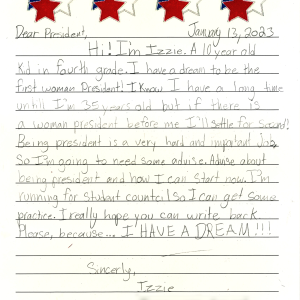 Dear President, January 13, 2023
Hi! I'm Izzie. A 10 year old
Kid in fourth grade. I have a dream to be the
first woman President! I know I have a long time
untill I'm 35 years old but if there is
a woman president before me I'll settle for second!
Being president is a very hard and important Job,
So I'm going to need some advise. Advise about
being president and how I can start now. I'm
running for student councel so I can get some
practice. I really hope you can write back
Please, because... I HAVE A DREAM!!!
Sincerly,
Izzie